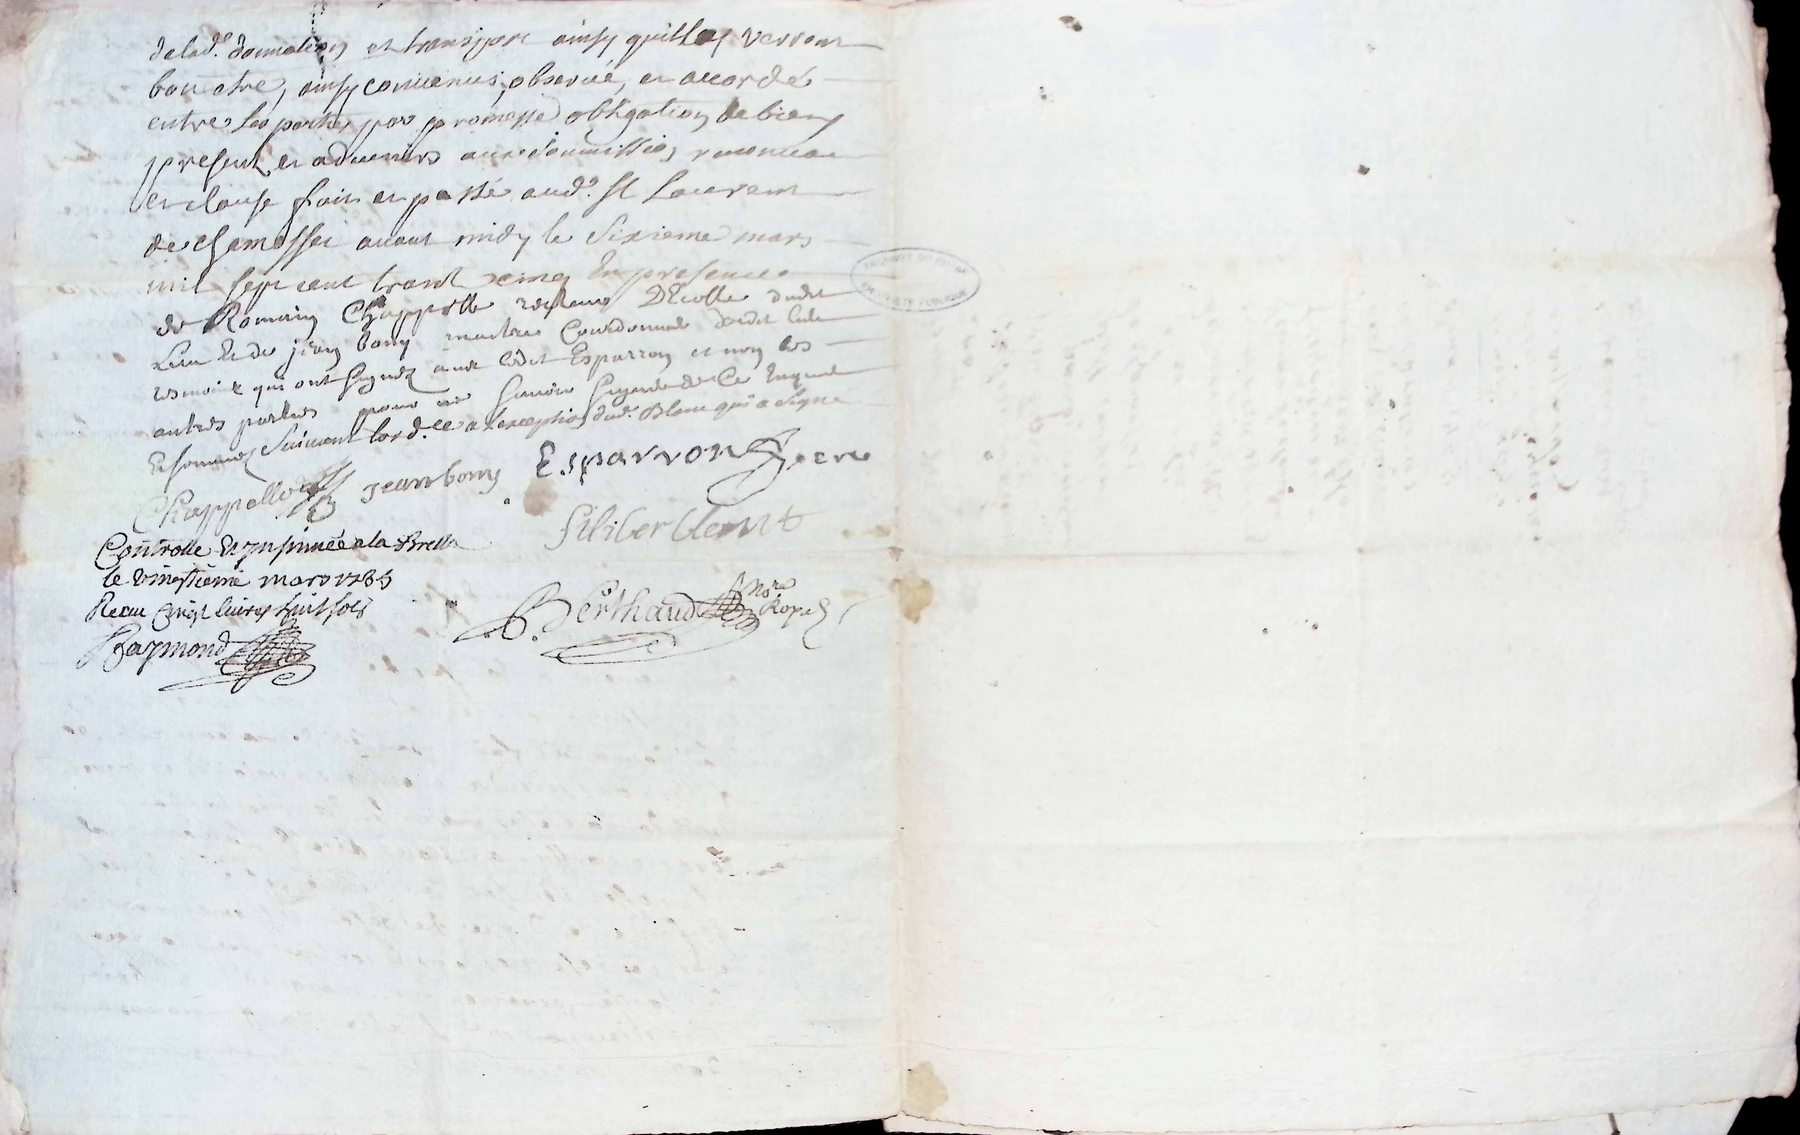 de lad.e donnation et transport ainsy quilles verront
bon etre, ainsy convenus, observé, et accordé
entre les parties par promesse obligation de biens
present et advenirs aux soumission renoncia
et clause fait et passé aud. St Laurent
de chamosset avant midy le Sixieme mars
mil sept cent trante cinq En presence
de Romain Chappelle recteur D'Ecolle dudit
Lieu Et de jean bony maitre Courdonnié dudit lieu
tesmoins qui ont signez avec ledit Esparron et non les
autres parties pour ne scavoir signer de Ce Enquis
Et sommés suivant lord.ce a lexception dud. Blanc qui a signe
Chappelle jean bony Esparron pere
Controlle Et insinuée a la
le vingtieme mars 1735
Receu livres huit sols
Berthaud No.re Royal
Raymond